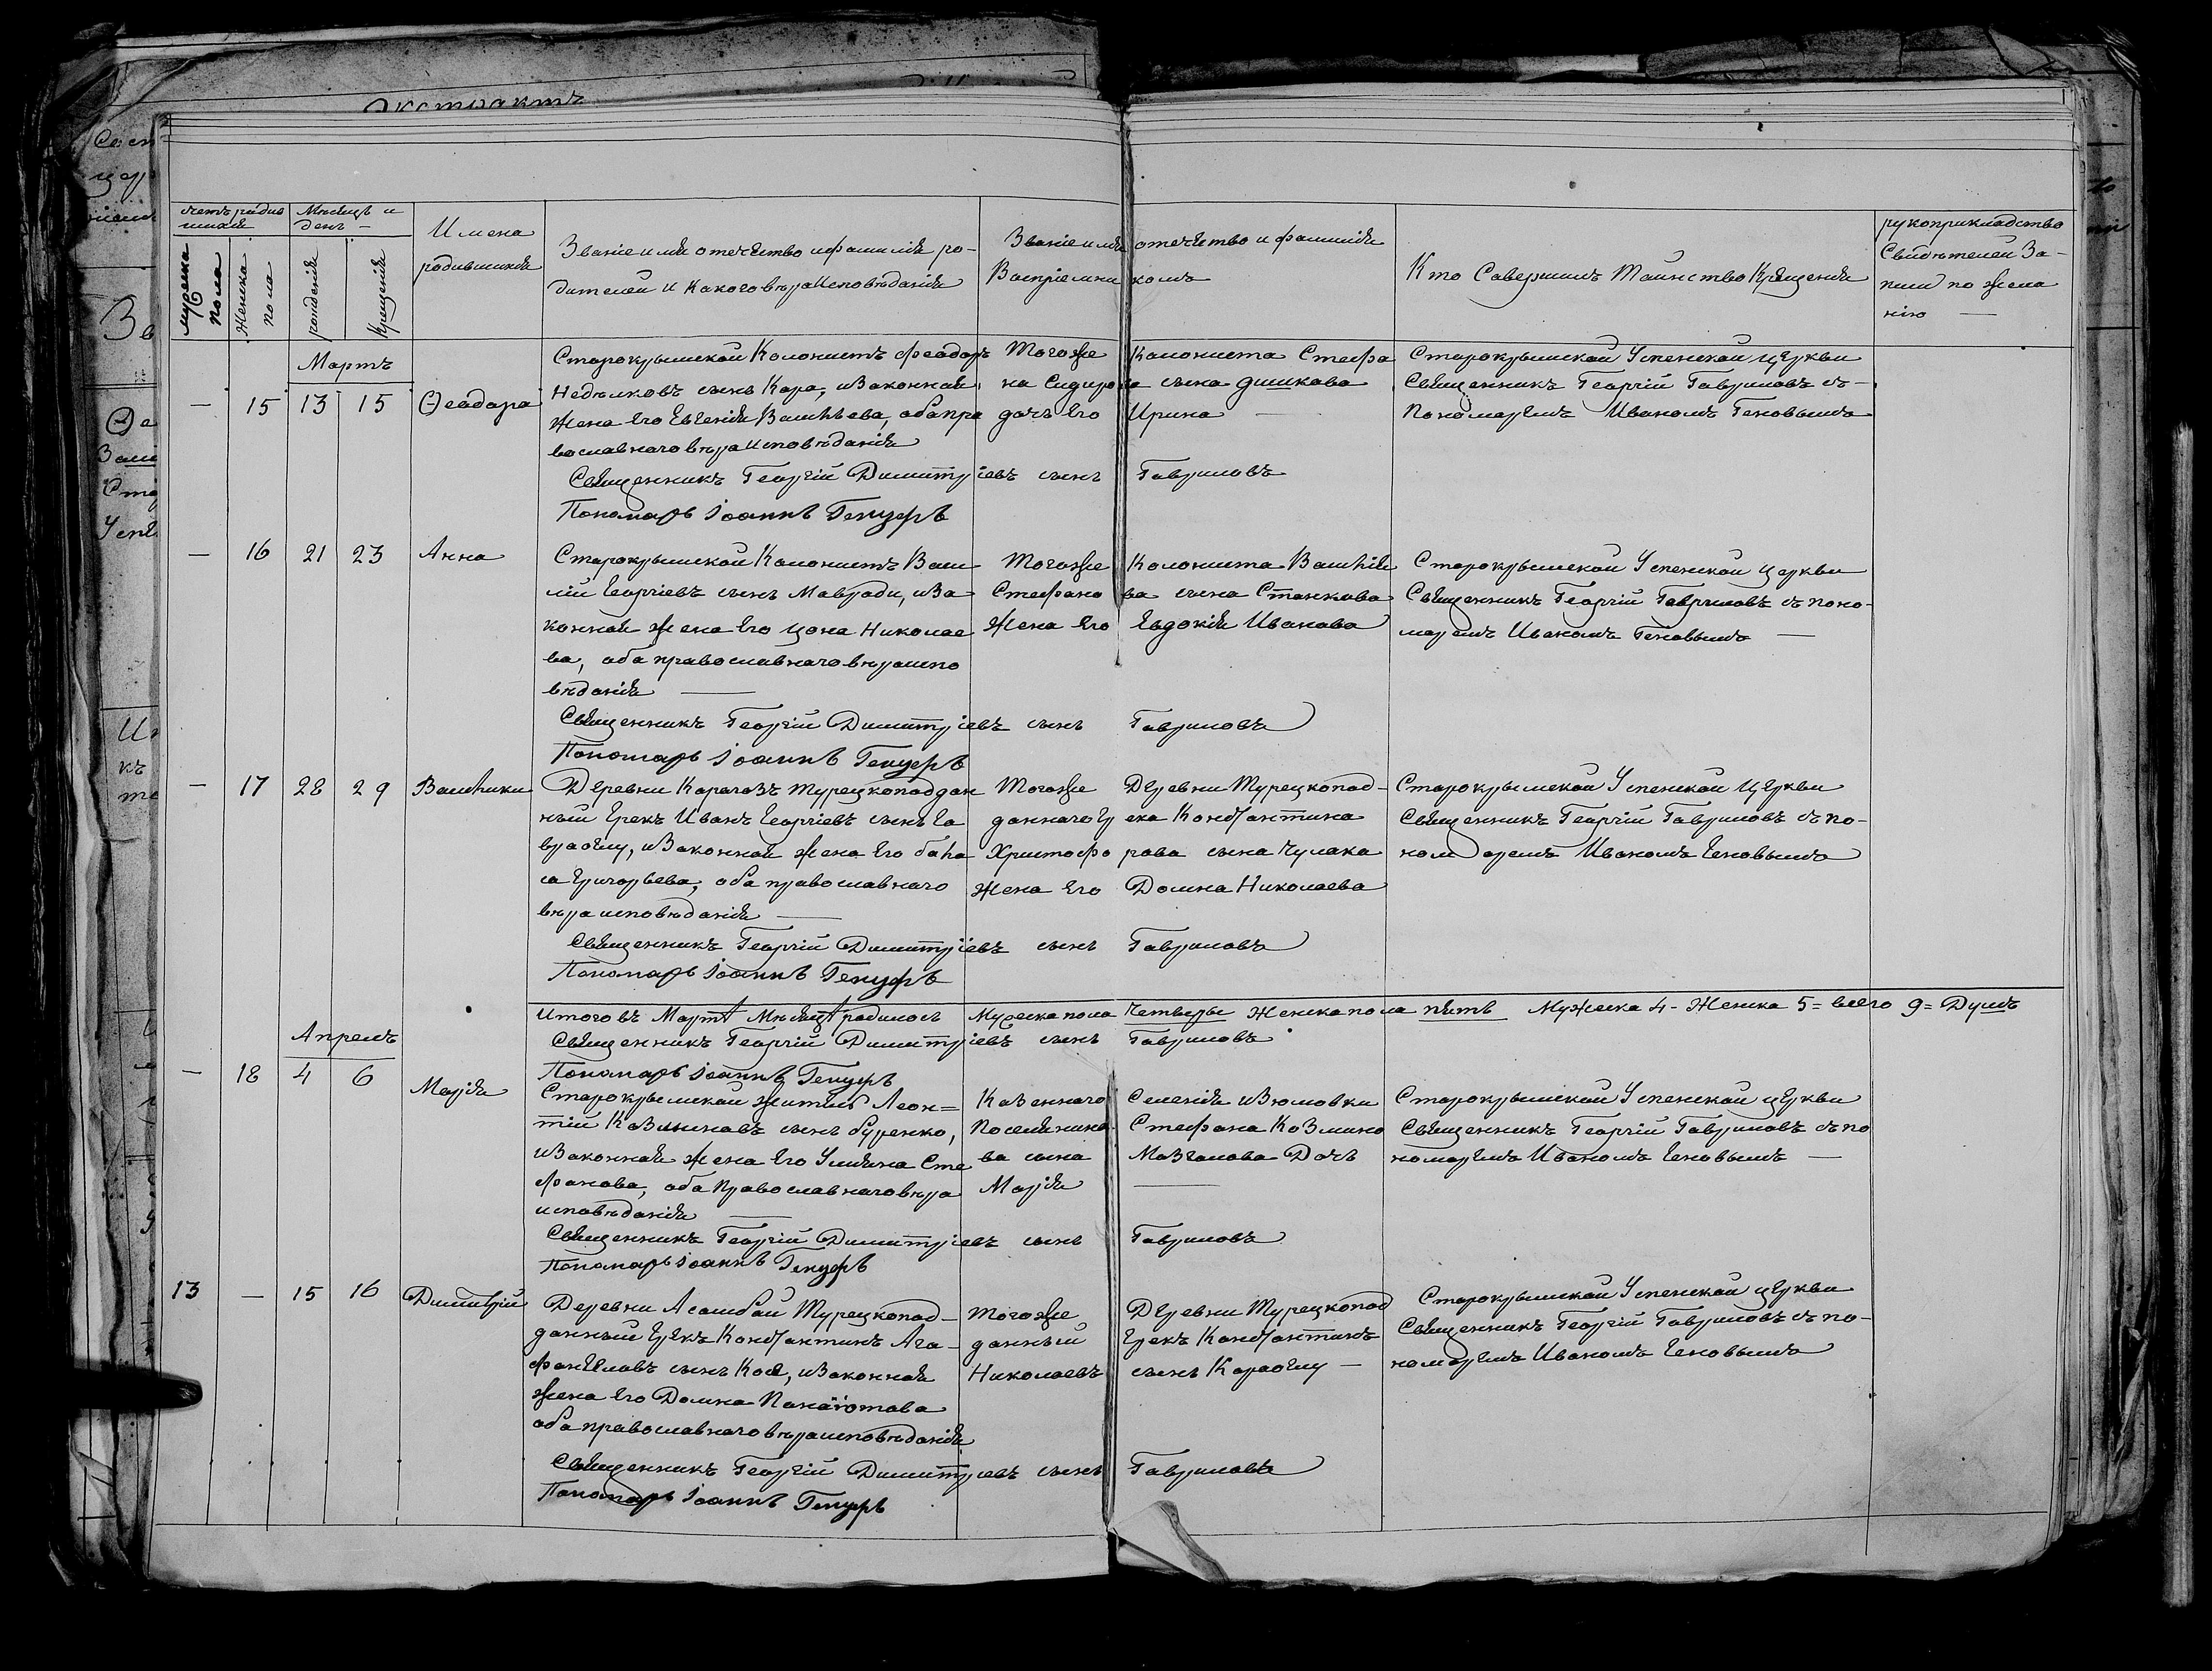 Экстрактъ
Счетъ родив
шихся
Мѣсяцъ и
день —
мужеска
пола
Женска
пола
рожденія
Крещенія
Имена
родившихся
Званіе имя отечество и фамилія ро-
дителей и какого вѣраисповѣданія
Званіе имя отечество и фамилія
Воспріемникомъ
Кто Савершилъ Таинство Крещенія
рукоприкладство
Свидѣтелей За-
писи по жела
нію —
Мартъ
— 15 13 15 Ѳеадора
Старокрымской Колонистъ Феадоръ
Недѣлковъ сынъ Кара, изаконная
жена его Евгенія Василѣева, оба пра
вославнаго вѣраисповѣданія
Тогоже Колониста Стефа
на Сидорова сына дишкова
дочь его Ирина —
Старокрымской Успенской церкви
Священникъ Георгій Гавриловъ съ-
Пономаремъ Иваномъ Геновымъ
Священникъ Георгій Димитріевъ сынъ Гавриловъ
Пономарь Іоаннъ
— 16 21 23 Анна
Старокрымской Колонистъ Васи
лій Георгіевъ сынъ Мавроди, иза
конная жена его цона Николае
ва, оба православнаго вѣраиспо
вѣданія —
Тогоже Колониста Василія
Стефанова сына Станкова
жена его Евдокія Иванова
Старокрымской Успенской церкви
Священникъ Георгій Гавриловъ съ поно-
маремъ Иваномъ Геновымъ —
Священникъ Георгій Димитріевъ сынъ Гавриловъ
Пономарь Іоаннъ
— 17 28 29 Василики
Деревни Карагозъ турецкоподдан
ный Грекъ Иванъ Георгіевъ сынъ
изаконная жена его
Григорьева, оба православнаго
вѣраисповѣданія —
Тогоже Деревни Турецкопод-
даннаго Грека Константина
Христофорова сына Чулака
жена его Домна Николаева
Старокрымской Успенской церкви
Священникъ Георгій Гавриловъ съ по-
номаремъ Иваномъ Геновымъ
Священникъ Георгій Димитріевъ сынъ Гавриловъ
Пономарь Іоаннъ
Итого въ Мартѣ Мѣсяцѣ родилось Мужеска пола Четверы Женска пола пять Мужеска 4- Женска 5= всего 9= Душъ
Священникъ Георгій Димитріевъ сынъ Гавриловъ
Пономарь Іоаннъ
Апрель
— 18 4 6 Марія
Старокрымской житель Леон=
тій Казминавъ сынъ буренко,
изаконная жена его Улияна Сте
фанова, оба Православнаго вѣра
исповѣданія —
Казеннаго Селенія изюмовки
Поселянина Стефана Козмино
ва сына Мозголова Дочь
Марія —
Старокрымской Успенской церкви
Священникъ Георгій Гавриловъ съ по
номаремъ Иваномъ Геновымъ —
Священникъ Георгій Димитріевъ сынъ Гавриловъ
Пономарь Іоаннъ
13 — 15 16 Димитрій
Деревни Асамбай Турецкопод-
данный Грекъ Константинъ Ага-
фангеловъ сынъ изаконная
жена его Домна Панаіотова
оба православнаго вѣраисповѣданія
Тогоже Деревни Турецкопод
данный Грекъ Константинъ
Николаевъ сынъ Караоглу —
Старокрымской Успенской церкви
Священникъ Георгій Гавриловъ съ по-
номаремъ Иваномъ Геновымъ
Священникъ Георгій Димитріевъ сынъ Гавриловъ
Пономарь Іоаннъ